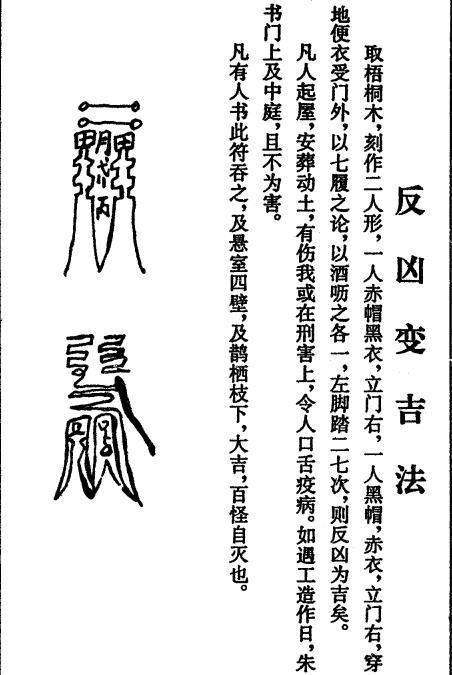 反凶变吉法
取梧桐木，刻作二人形，一人赤帽黑衣，立门右，一人黑帽，赤衣，立门右，穿
地便衣受门外，以七履之论，以酒呖之各一，左脚踏二七次，则反凶为吉矣。
凡人起屋，安葬动土，有伤我或在刑害上，令人口舌疫病。如遇工造作日，朱
书门上及中庭，且不为害。
凡有人书此符吞之，及悬室四壁，及鹊栖枝下，大吉，百怪自灭也。